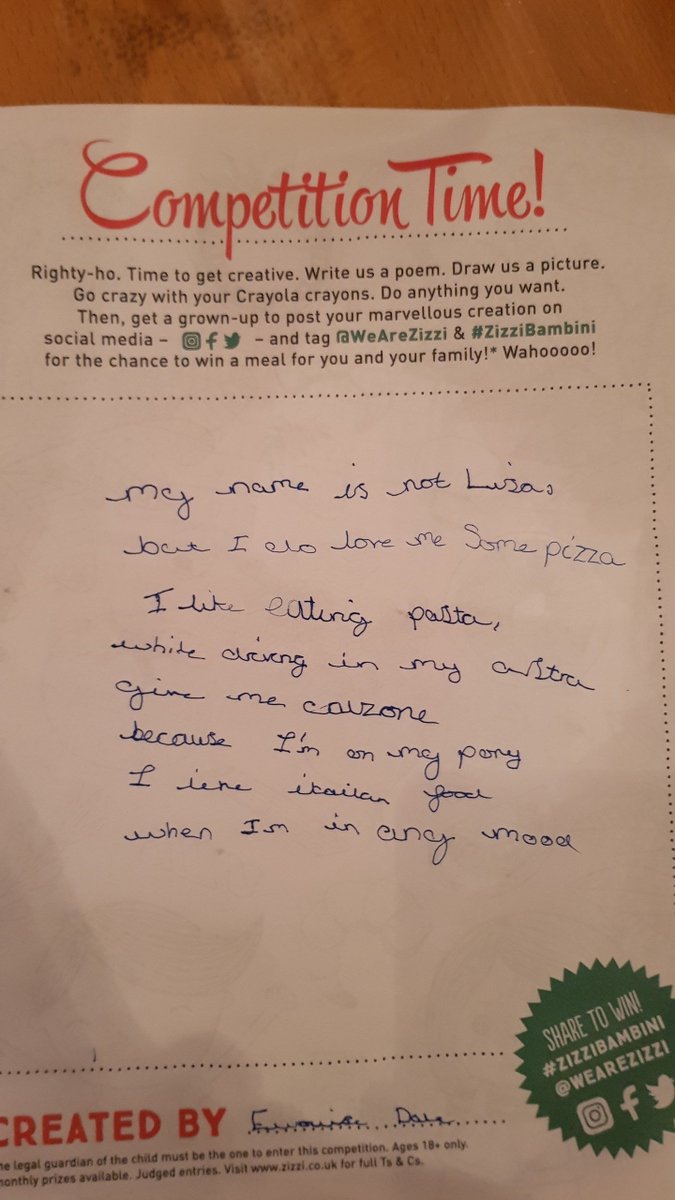 Competition Time!
Righty-ho. Time to get creative. Write us a poem. Draw us a picture.
Go crazy with your Crayola crayons. Do anything you want.
Then, get a grown-up to post your marvellous creation on
social media – – and tag @WeAreZizzi & #ZizziBambini
for the chance to win a meal for you and your family!* Wahooooo!
my name is not Lisa,
but I do love me Some pizza
I like eating pasta,
while driving in my astra
give me calzone
because I'm on my pony
I italian food
when I'm in any mood
SHARE TO WIN!
#ZIZZIBAMBINI
@WEAREZIZZI
CREATED BY
legal guardian of the child must be the one to enter this competition. Ages 18+ only.
monthly prizes available. Judged entries. Visit www.zizzi.co.uk for full Ts & Cs.